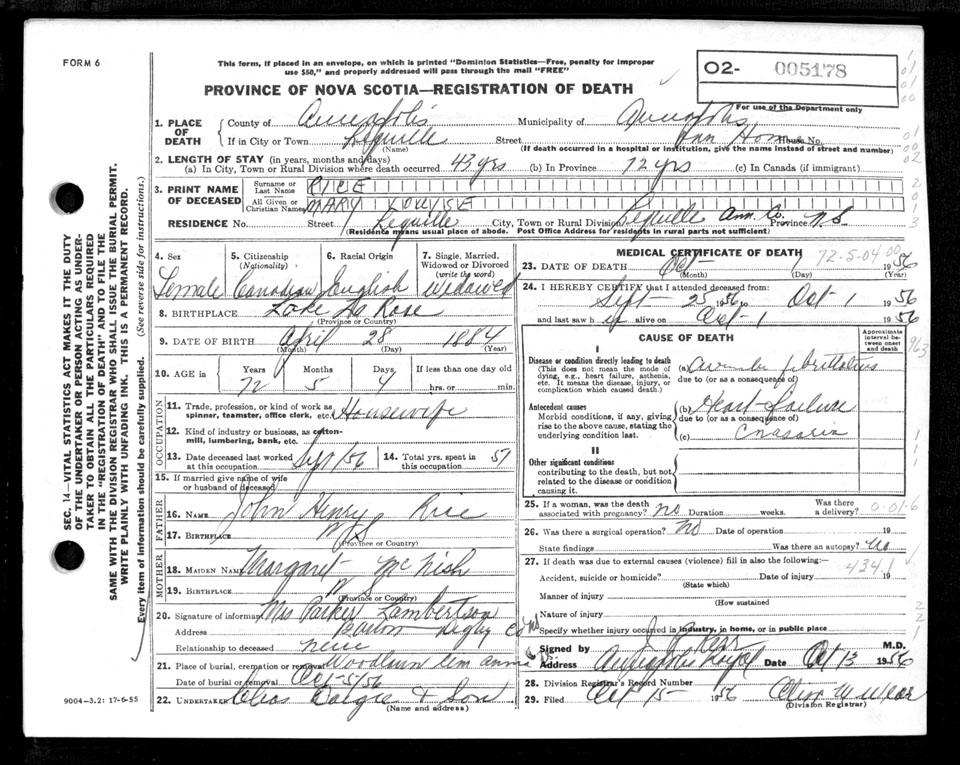 FORM 6
This form, if placed in an envelope, on which is printed "Dominion Statistics—Free, penalty for improper
use $50," and properly addressed will pass through the mail "FREE"
02- 005178
PROVINCE OF NOVA SCOTIA—REGISTRATION OF DEATH
For use of the Department only
1. PLACE OF DEATH
County of Annapolis Municipality of Annapolis
If in City or Town Lequille Street House No.
(Name) (If death occurred in a hospital or institution, give the name instead of street and number)
2. LENGTH OF STAY (in years, months and days)
(a) In City, Town or Rural Division where death occurred 43 yrs (b) In Province 72 yrs (c) In Canada (if immigrant)
3. PRINT NAME OF DECEASED
Surname or Last Name RICE
All Given or Christian Names MARY LOUISE
RESIDENCE No. Street Lequille City, Town or Rural Division Lequille Ann. Co. Province N.S
(Residence means usual place of abode. Post Office Address for residents in rural parts not sufficient)
4. Sex Female
5. Citizenship (Nationality) Canadian
6. Racial Origin English
7. Single, Married, Widowed or Divorced (write the word) Widowed
8. BIRTHPLACE Lake La Rose
(Province or Country)
9. DATE OF BIRTH April 28 1884
(Month) (Day) (Year)
10. AGE in Years Months Days If less than one day
72 5 4 hrs. or min.
OCCUPATION
11. Trade, profession, or kind of work as spinner, teamster, office clerk, etc. Housewife
12. Kind of industry or business, as cotton-mill, lumbering, bank, etc.
13. Date deceased last worked at this occupation Sept/56
14. Total yrs. spent in this occupation 57
15. If married give name of wife or husband of deceased
FATHER
16. NAME John Henry Rice
17. BIRTHPLACE N S
(Province or Country)
MOTHER
18. MAIDEN NAME Margaret McNish
19. BIRTHPLACE N S
(Province or Country)
20. Signature of informant Mrs Parker Lambertson
Address Digby Co NS
Relationship to deceased niece
21. Place of burial, cremation or removal Woodlawn Cem
Date of burial or removal Oct-5/56
22. UNDERTAKER & Son
(Name and address)
MEDICAL CERTIFICATE OF DEATH
72-5-04 00
23. DATE OF DEATH Oct 1956
(Month) (Day) (Year)
24. I HEREBY CERTIFY that I attended deceased from:
Sept 25 1956 to Oct-1 1956
and last saw h er alive on Oct-1 1956
CAUSE OF DEATH
Approximate interval between onset and death
I
Disease or condition directly leading to death
(This does not mean the mode of dying, e.g., heart failure, asthenia, etc. It means the disease, injury, or complication which caused death.)
(a)
due to (or as a consequence of)
Antecedent causes
Morbid conditions, if any, giving rise to the above cause, stating the underlying condition last.
(b) Heart failure
due to (or as a consequence of)
(c)
II
Other significant conditions
contributing to the death, but not related to the disease or condition causing it.
25. If a woman, was the death associated with pregnancy? no Duration weeks. Was there a delivery? 0-01-6
26. Was there a surgical operation? No Date of operation 19
State findings Was there an autopsy? No
27. If death was due to external causes (violence) fill in also the following:—
434.1
Accident, suicide or homicide? Date of injury 19
(State which)
Manner of injury
(How sustained)
Nature of injury
Specify whether injury occurred in industry, in home, or in public place
Signed by M.D.
Address Annapolis Royal Date Oct 13 1956
28. Division Registrar's Record Number
29. Filed Oct 15- 1956
(Division Registrar)
SEC. 14—VITAL STATISTICS ACT MAKES IT THE DUTY
OF THE UNDERTAKER OR PERSON ACTING AS UNDER-
TAKER TO OBTAIN ALL THE PARTICULARS REQUIRED
IN THE "REGISTRATION OF DEATH" AND TO FILE THE
SAME WITH THE DIVISION REGISTRAR WHO SHALL ISSUE THE BURIAL PERMIT.
WRITE PLAINLY WITH UNFADING INK. THIS IS A PERMANENT RECORD.
Every item of information should be carefully supplied. (See reverse side for instructions.)
9004-3.2: 17-6-55